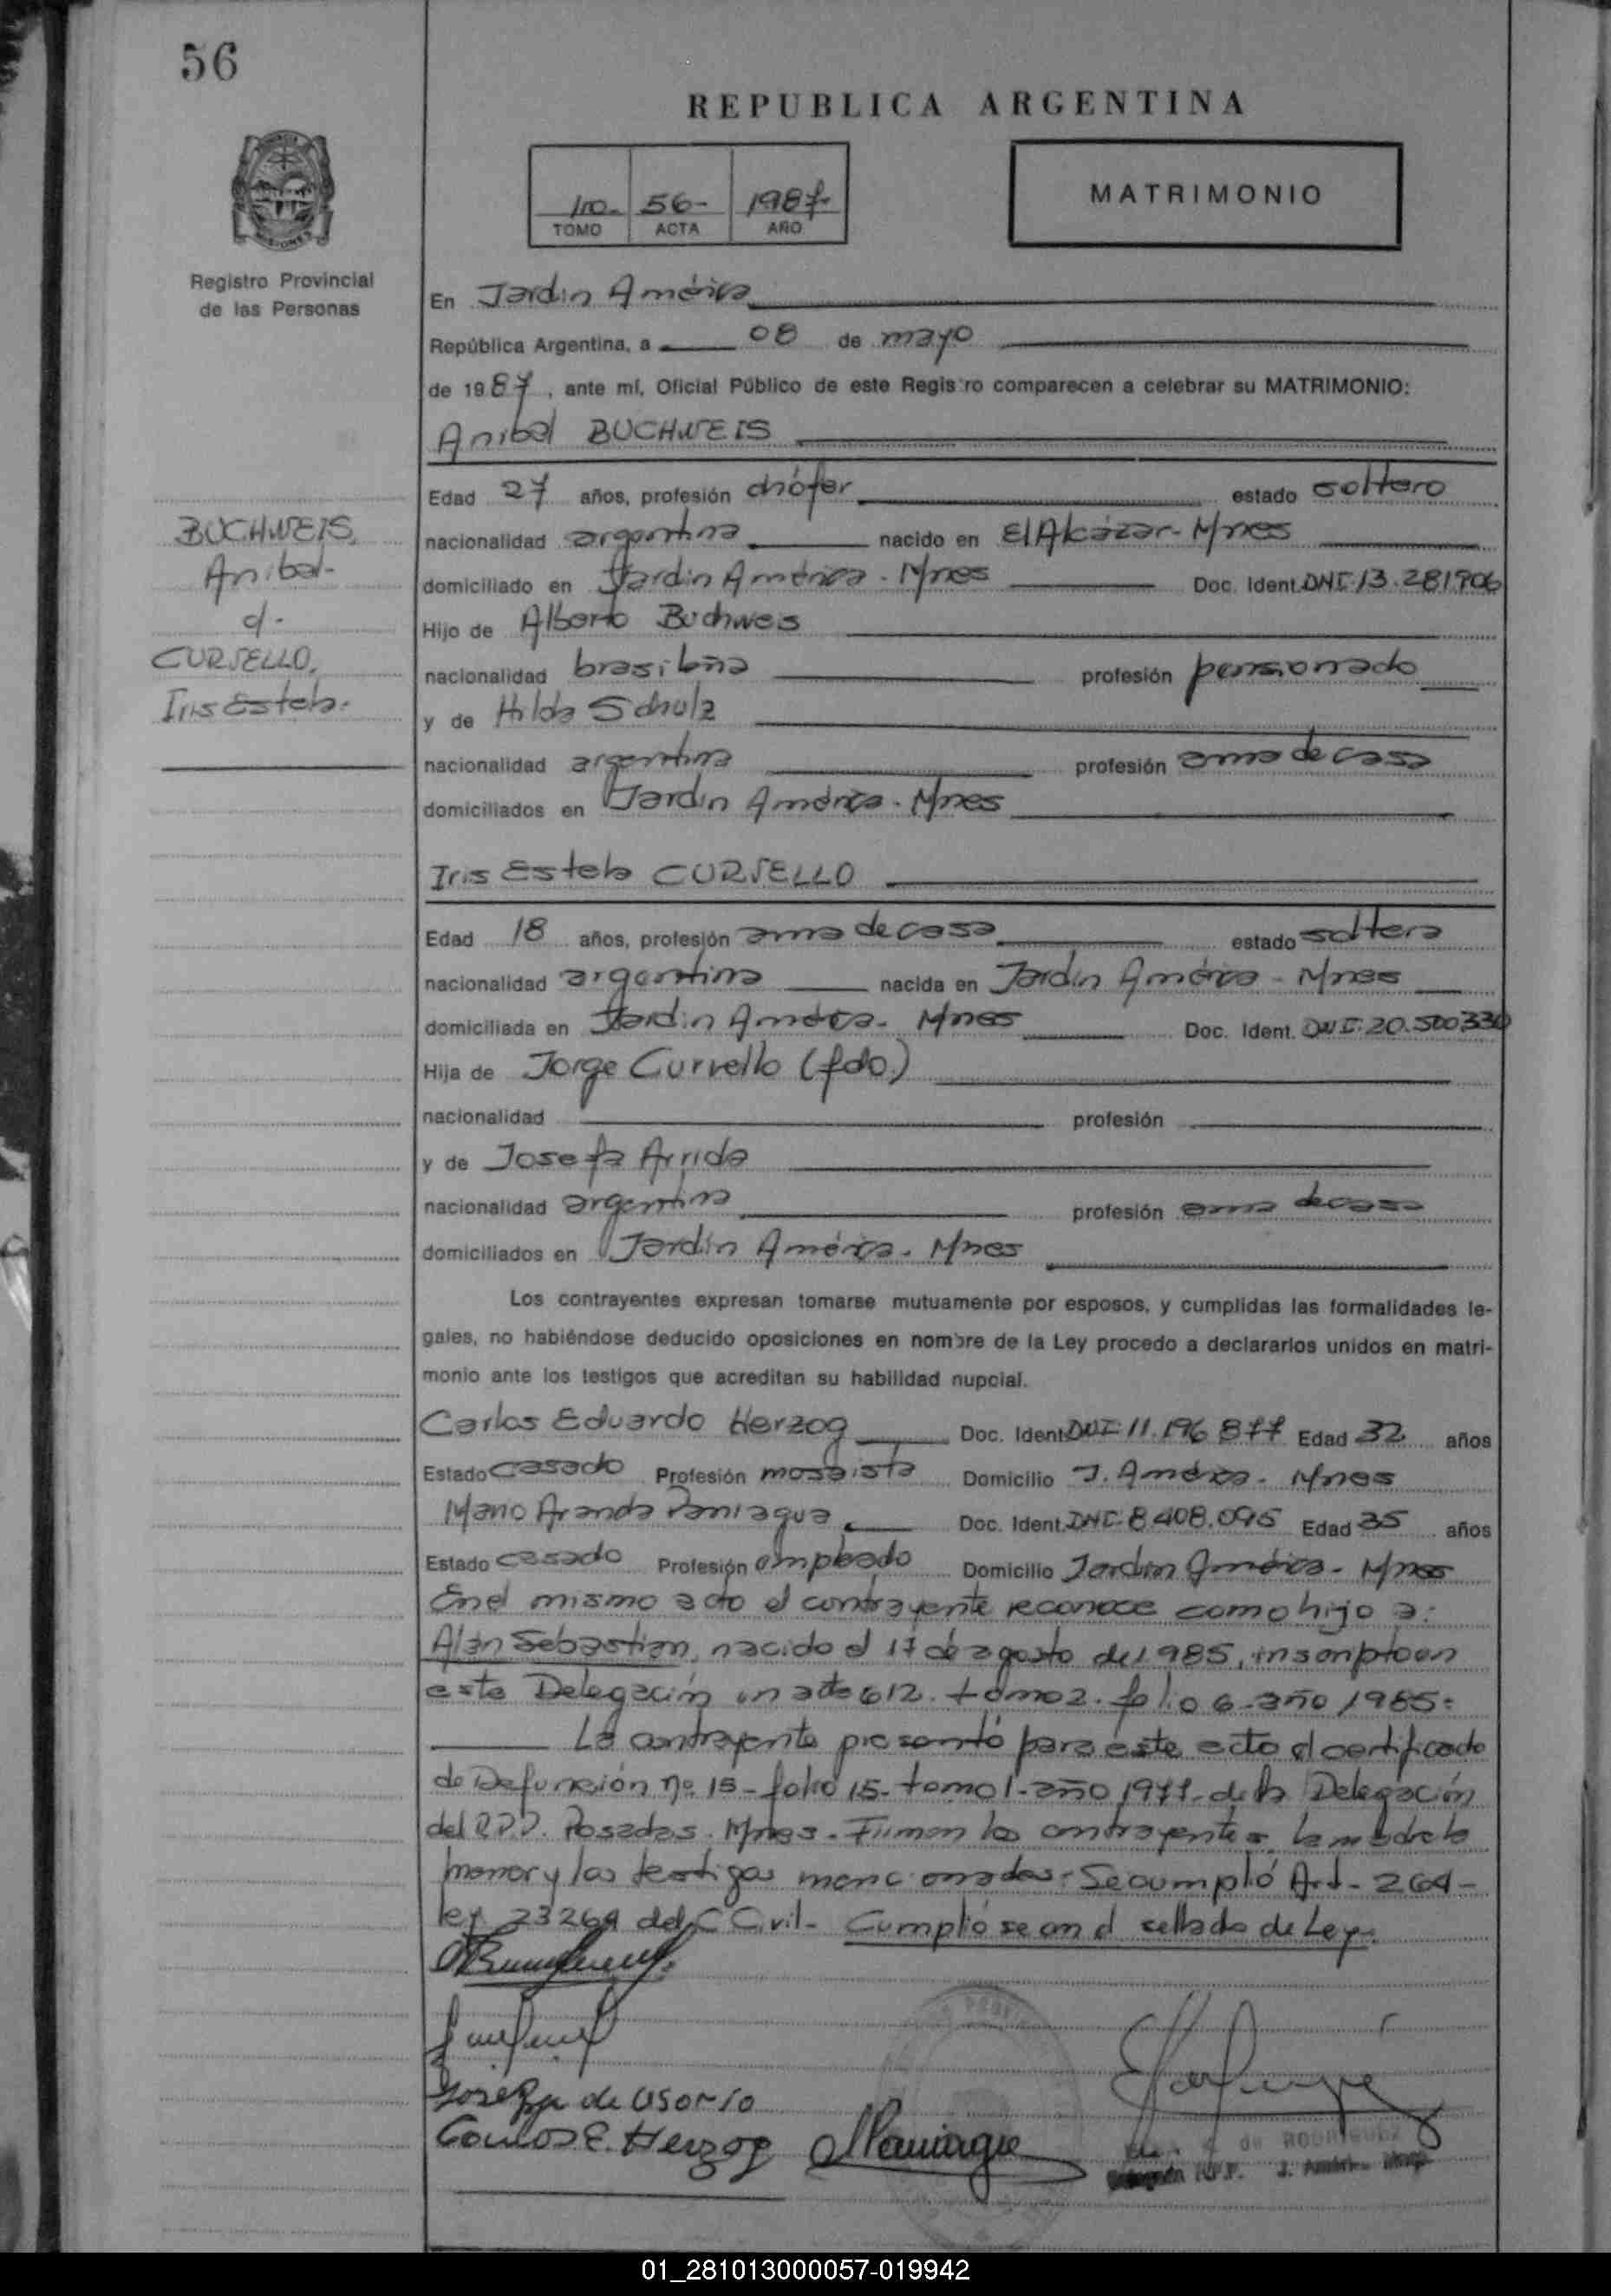 56
REPUBLICA ARGENTINA
1ro- 56- 1987-
TOMO ACTA AÑO
MATRIMONIO
Registro Provincial
de las Personas
En Jardin América
República Argentina, a 08 de mayo
de 1987, ante mí, Oficial Público de este Registro comparecen a celebrar su MATRIMONIO:
Anibal BUCHWEIS
Edad 27 años, profesión chófer estado soltero
BUCHWEIS,
Anibal-
c/-
CURVELLO,
Iris Estela-
nacionalidad argentina nacido en El Alcázar- Mnes
domiciliado en Jardin América - Mnes Doc. Ident. DNI: 13.281.906
Hijo de Alberto Buchweis
nacionalidad brasileña profesión pensionado
y de Hilda Schulz
nacionalidad argentina profesión ama de casa
domiciliados en Jardin América - Mnes
Iris Estela CURVELLO
Edad 18 años, profesión ama de casa estado soltera
nacionalidad argentina nacida en Jardin América - Mnes
domiciliada en Jardin América - Mnes Doc. Ident. DNI: 20.500.330
Hija de Jorge Curvello (fdo.)
nacionalidad profesión
y de Josefa Arrida
nacionalidad argentina profesión ama de casa
domiciliados en Jardin América - Mnes
Los contrayentes expresan tomarse mutuamente por esposos, y cumplidas las formalidades le-
gales, no habiéndose deducido oposiciones en nombre de la Ley procedo a declararlos unidos en matri-
monio ante los testigos que acreditan su habilidad nupcial.
Carlos Eduardo Herzog Doc. Ident. DNI: 11.196 877 Edad 32 años
Estado casado Profesión mosaista Domicilio J. América - Mnes
Mario Aranda Paniagua Doc. Ident. DNI: 8.408.095 Edad 35 años
Estado casado Profesión empleado Domicilio Jardin América - Mnes
En el mismo acto el contrayente reconoce como hijo a:
Alan Sebastian, nacido el 17 de agosto de 1985, inscripto en
esta Delegación en acta 612. tomo 2. folio 6- año 1985-
La contrayente presentó para este acto el certificado
de Defunción nº 15- folio 15- tomo 1- año 1977- de la Delegación
del R.P.P. Posadas. Mnes. Firman los contrayentes la madre la
menor y los testigos mencionados- Se cumplió Art- 264-
ley 23264 del C Civil- Cumplióse con el sellado de Ley.
Josefa de Osorio
Carlos E. Herzog MPaniagua
de RODRIGUEZ
R.P.P. J. América
01_281013000057-019942